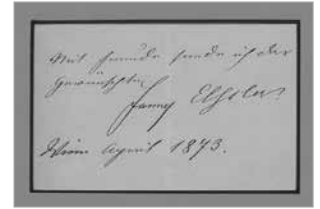 Mit Freude sende ich das
Gewünschte,
Fanny Elßler.
Wien April 1873.